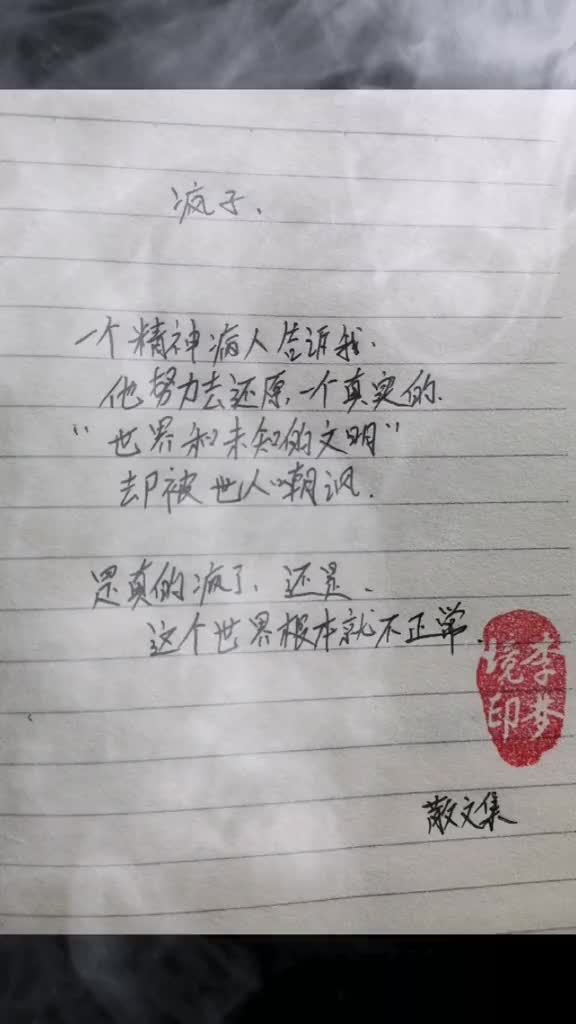 疯子.
一个精神病人告诉我.
他努力去还原.一个真实的.
“世界和未知的文明”
却被世人嘲讽.
是真的疯了.还是.
这个世界根本就不正常.
李梦
境印
散文集